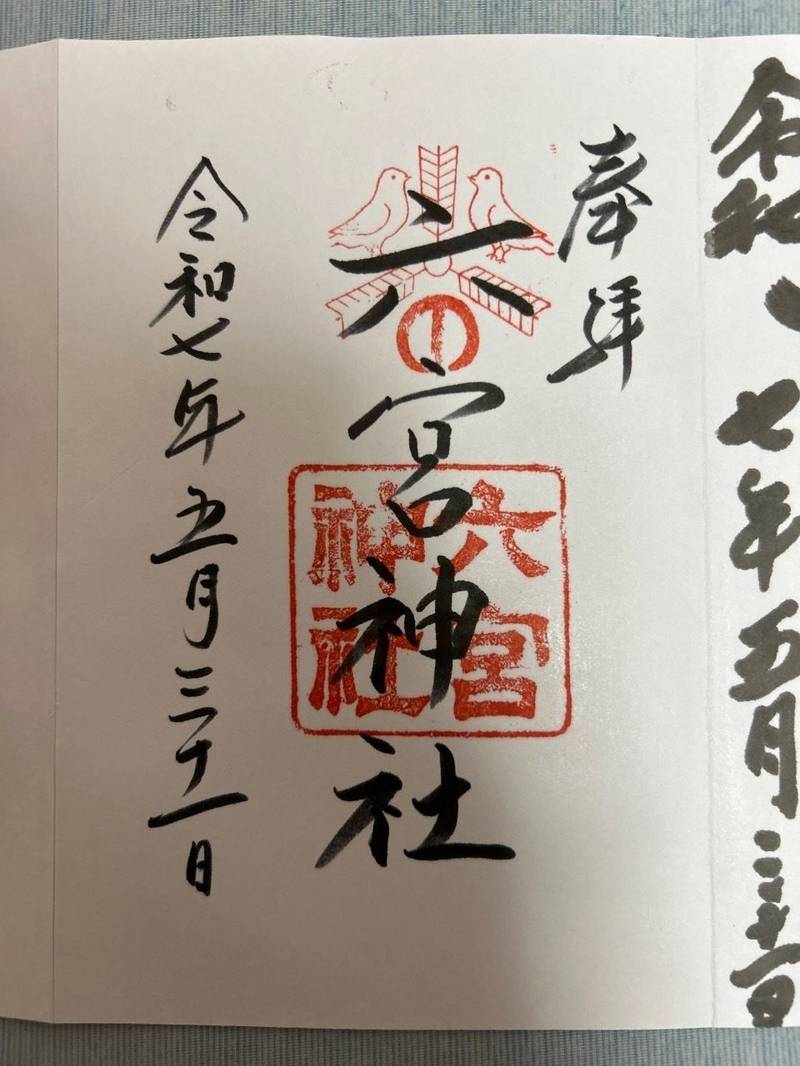 奉拝
六宮神社
六宮
神社
令和七年五月三十一日
七年五月三十一日